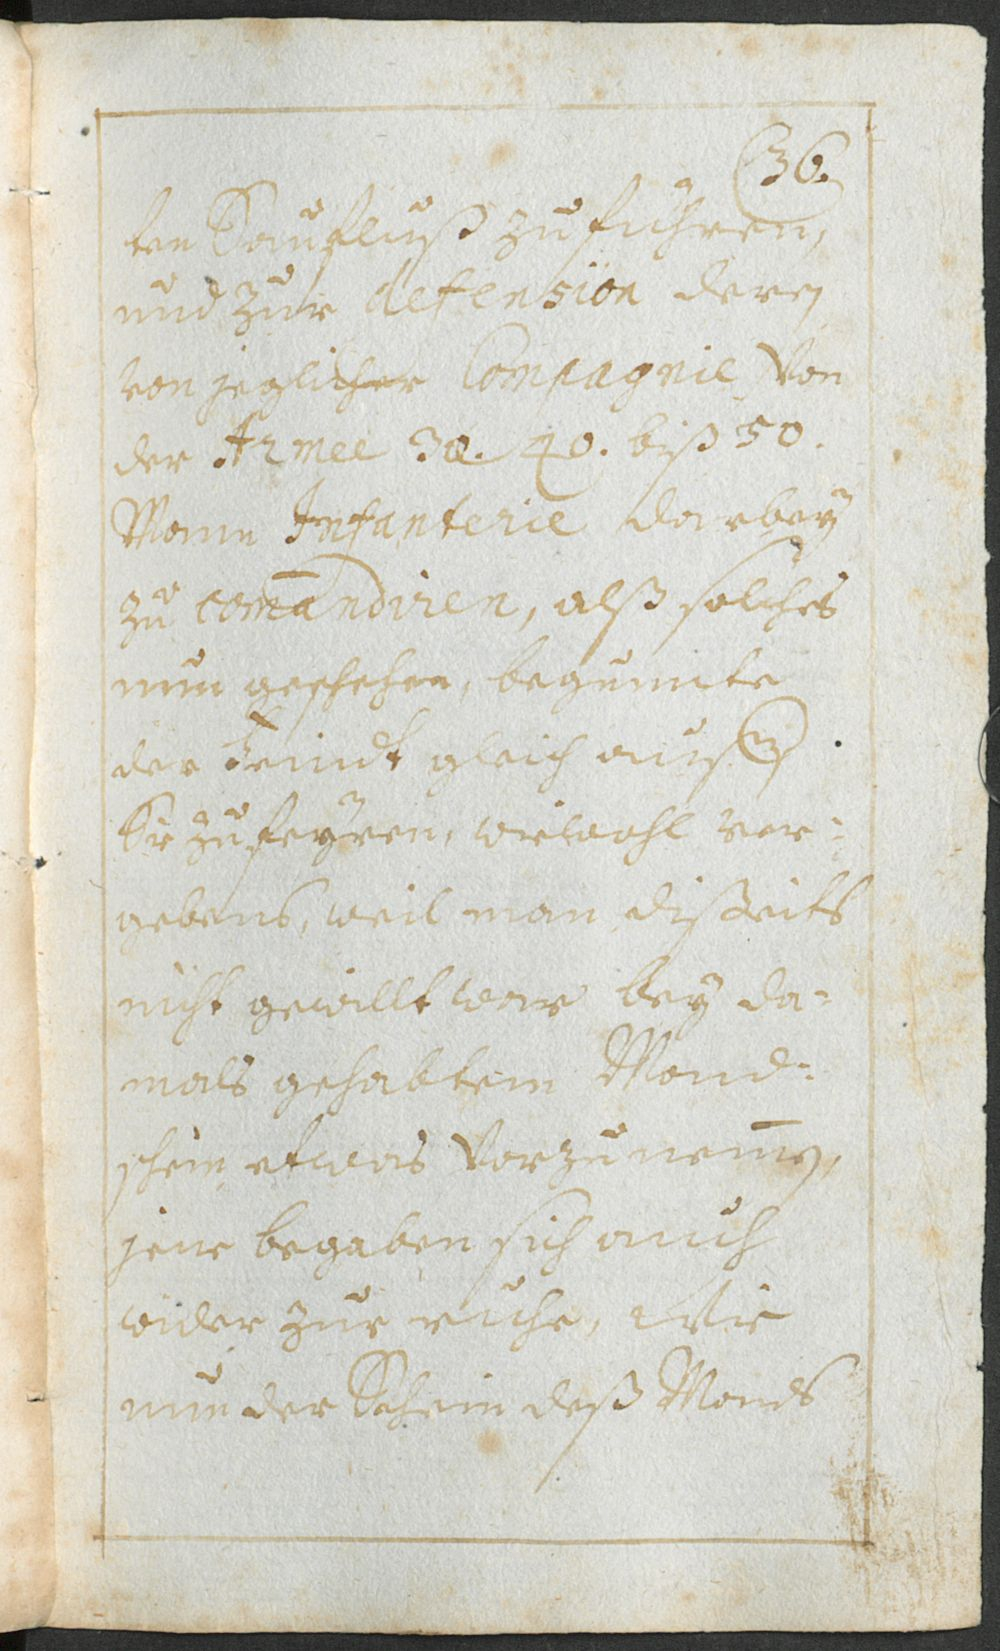 36.
ten Saufluß zu führen,
und zur defension deren
von jeglicher Compagnie von
der Armee 30. 40. biß 50.
Mann Infanterie darbey
zu com̄andiren, alß solches
nun geschehen, begunnte
der Feindt gleich auf
Sie zu feyren, wiewohl ver-
gebens, weil man disseits
nicht gewillt war bey da-
mals gehabtem Mond-
schein etwas vorzunem̄en,
jene begaben sich auch
wider zur ruhe, Wie
nun der Schein deß Monds